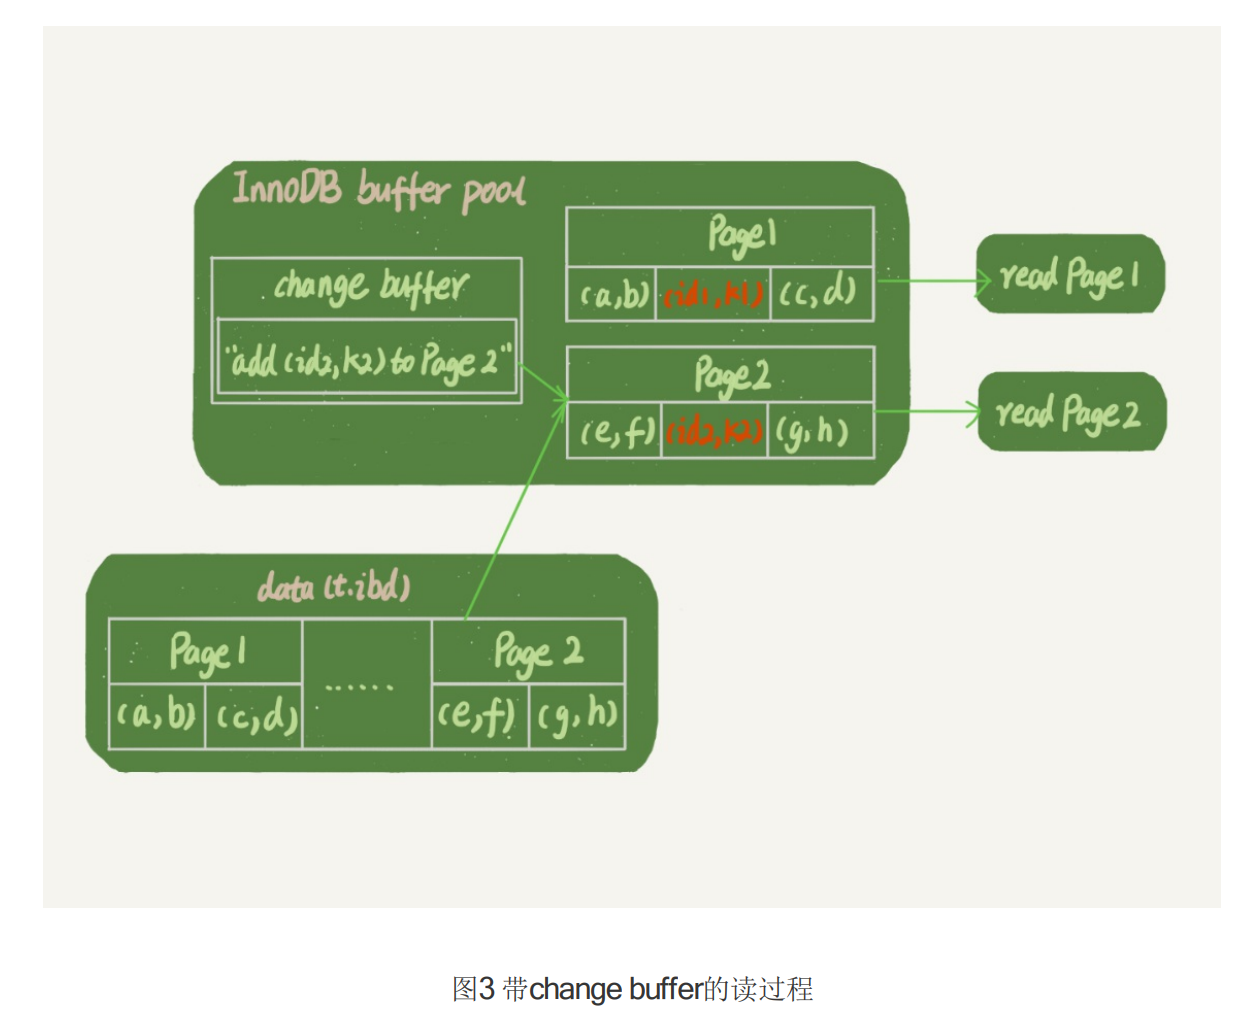 InnoDB buffer pool
change buffer
"add (id2,k2) to Page 2"
Page1
(a,b) (id1,k1) (c,d)
read Page1
Page2
(e,f) (id2,k2) (g,h)
read Page2
data (t.ibd)
Page1 ...... Page 2
(a,b) (c,d) (e,f) (g,h)
图3 带change buffer的读过程